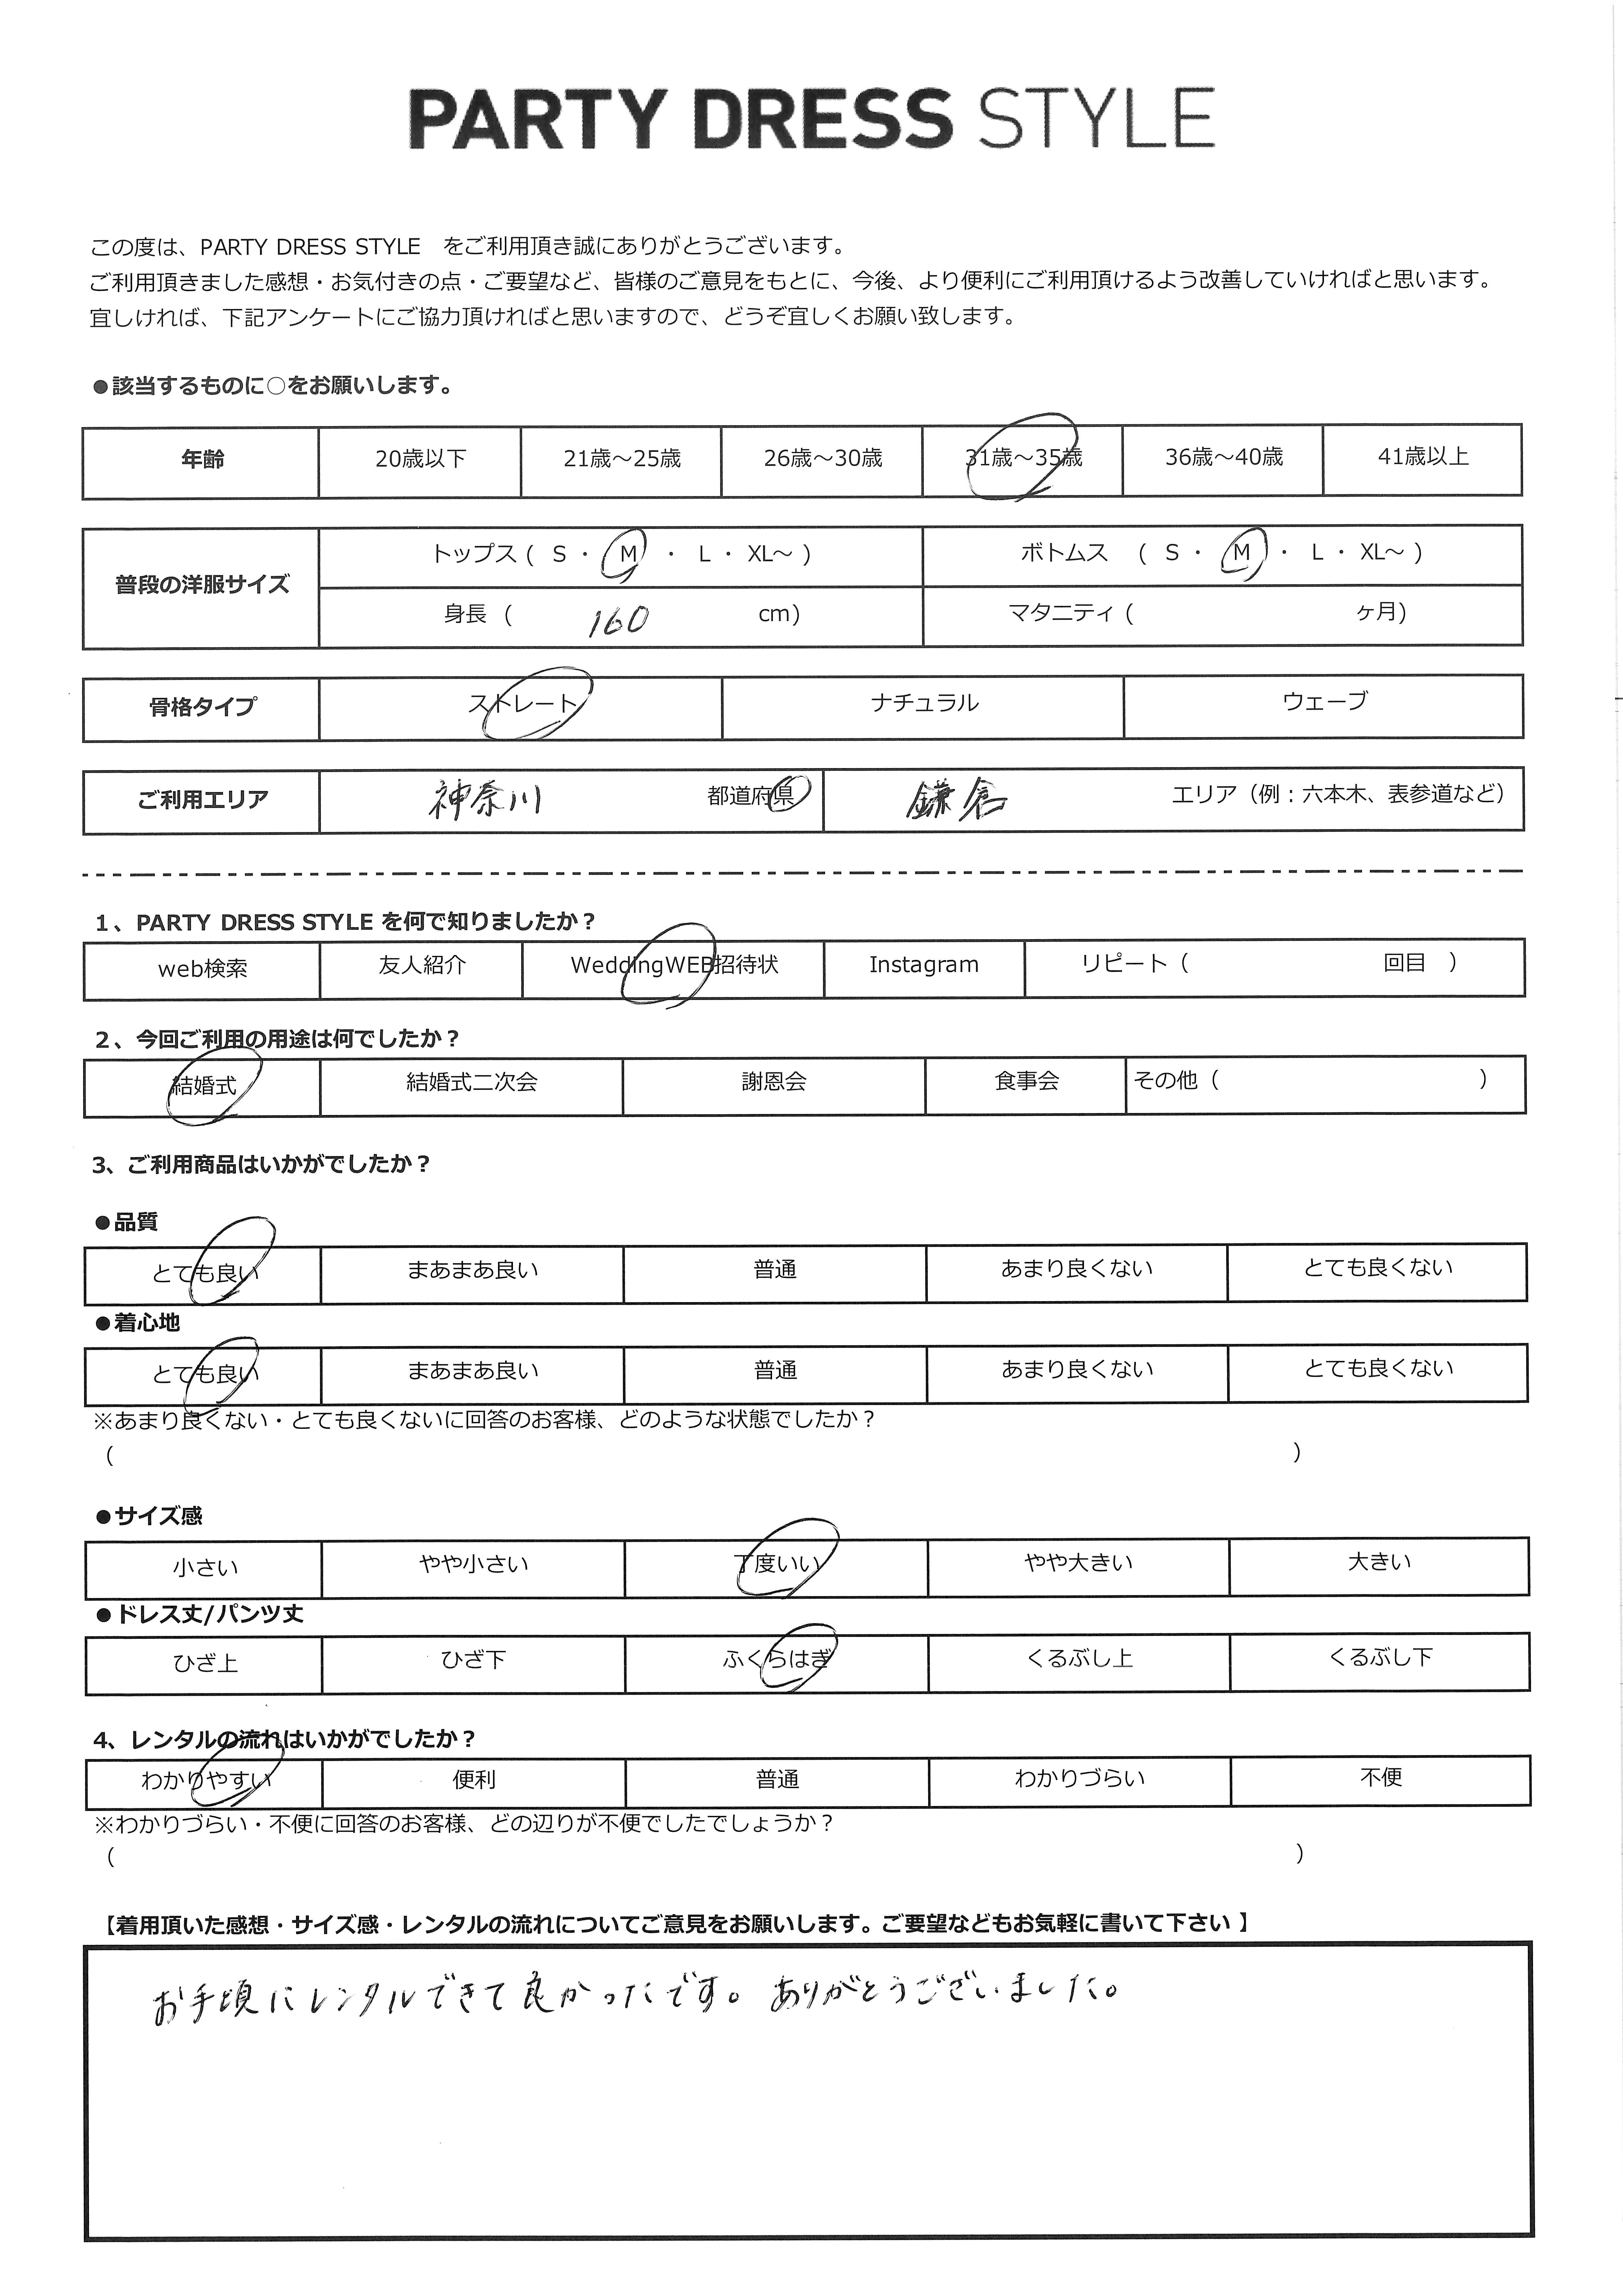 PARTY DRESS STYLE
この度は、PARTY DRESS STYLE　をご利用頂き誠にありがとうございます。
ご利用頂きました感想・お気付きの点・ご要望など、皆様のご意見をもとに、今後、より便利にご利用頂けるよう改善していければと思います。
宜しければ、下記アンケートにご協力頂ければと思いますので、どうぞ宜しくお願い致します。
●該当するものに○をお願いします。
年齢 20歳以下 21歳～25歳 26歳～30歳 31歳～35歳 36歳～40歳 41歳以上
普段の洋服サイズ
トップス ( S ・ M ・ L ・ XL～ ) ボトムス ( S ・ M ・ L ・ XL～ )
身長 ( 160 cm) マタニティ ( ヶ月)
骨格タイプ ストレート ナチュラル ウェーブ
ご利用エリア 神奈川 都道府県 鎌倉 エリア（例：六本木、表参道など）
1、PARTY DRESS STYLE を何で知りましたか？
web検索 友人紹介 WeddingWEB招待状 Instagram リピート（ 回目 ）
2、今回ご利用の用途は何でしたか？
結婚式 結婚式二次会 謝恩会 食事会 その他（ ）
3、ご利用商品はいかがでしたか？
●品質
とても良い まあまあ良い 普通 あまり良くない とても良くない
●着心地
とても良い まあまあ良い 普通 あまり良くない とても良くない
※あまり良くない・とても良くないに回答のお客様、どのような状態でしたか？
（ ）
●サイズ感
小さい やや小さい 丁度いい やや大きい 大きい
●ドレス丈/パンツ丈
ひざ上 ひざ下 ふくらはぎ くるぶし上 くるぶし下
4、レンタルの流れはいかがでしたか？
わかりやすい 便利 普通 わかりづらい 不便
※わかりづらい・不便に回答のお客様、どの辺りが不便でしたでしょうか？
（ ）
【着用頂いた感想・サイズ感・レンタルの流れについてご意見をお願いします。ご要望などもお気軽に書いて下さい 】
お手頃にレンタルできて良かったです。ありがとうございました。